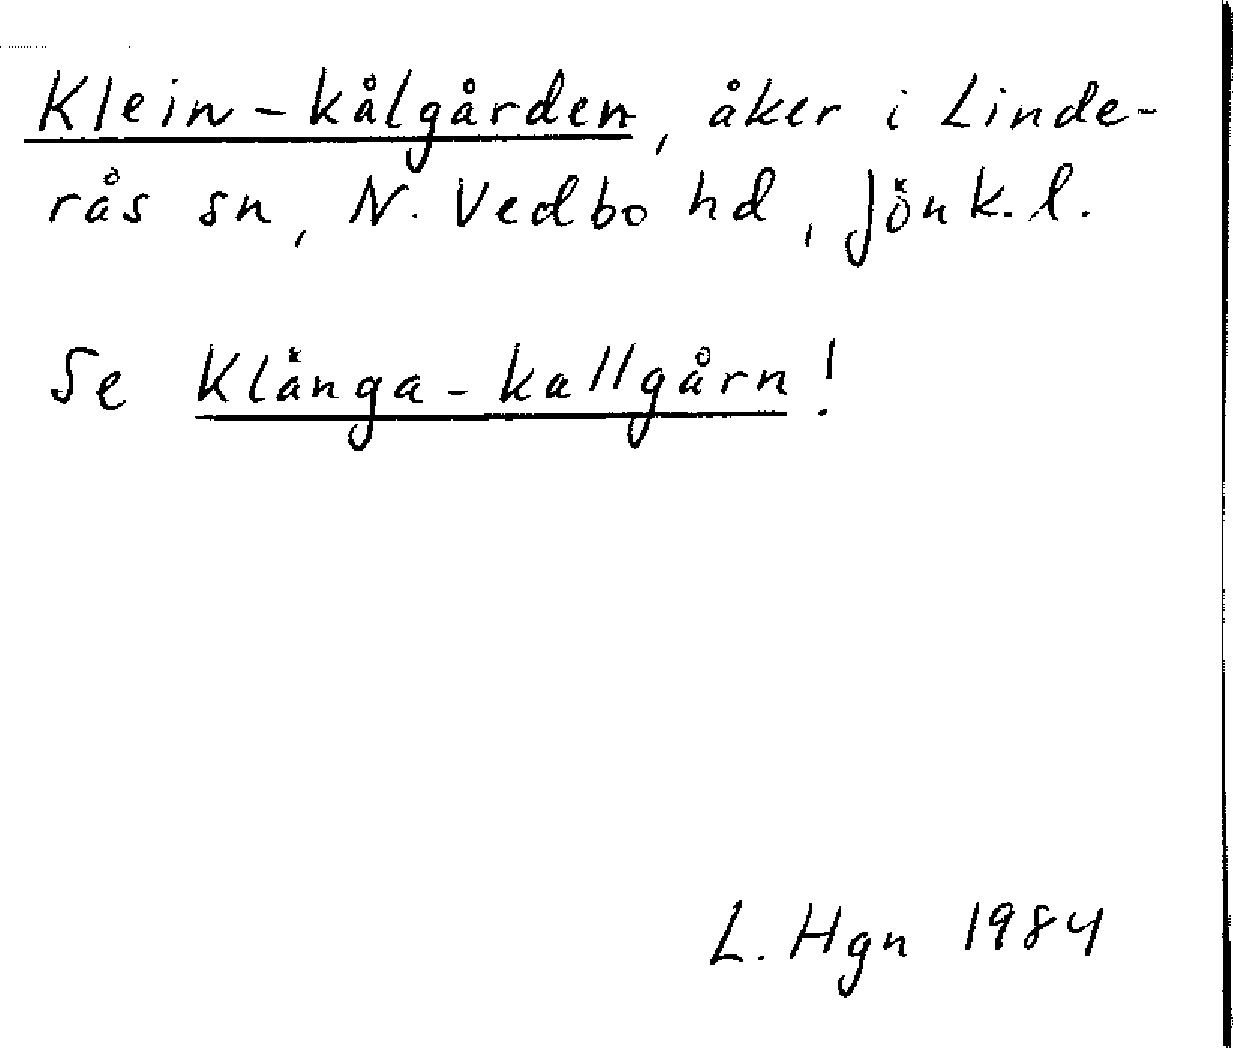 Klein-kålgården, åker i Linde-
rås sn, N. Vedbo hd, Jönk. l.
Se Klånga-kallgårn!
L. Hgn 1984